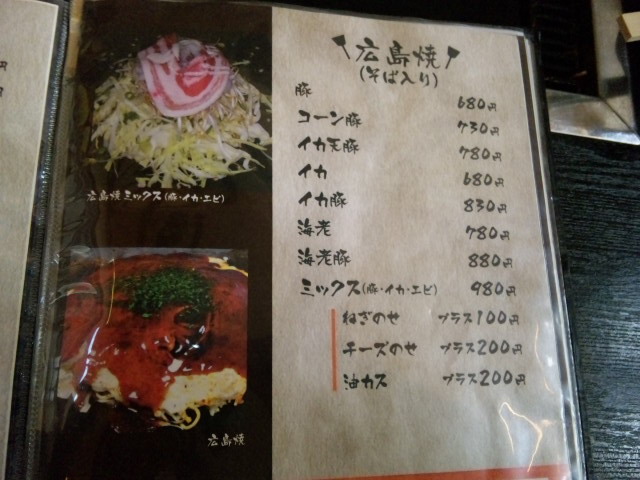 広島焼
(そば入り)
豚 680円
コーン豚 730円
イカ天豚 780円
イカ 680円
イカ豚 830円
海老 780円
海老豚 880円
ミックス(豚・イカ・エビ) 980円
ねぎのせ プラス100円
チーズのせ プラス200円
油カス プラス200円
広島焼 ミックス(豚・イカ・エビ)
広島焼
円